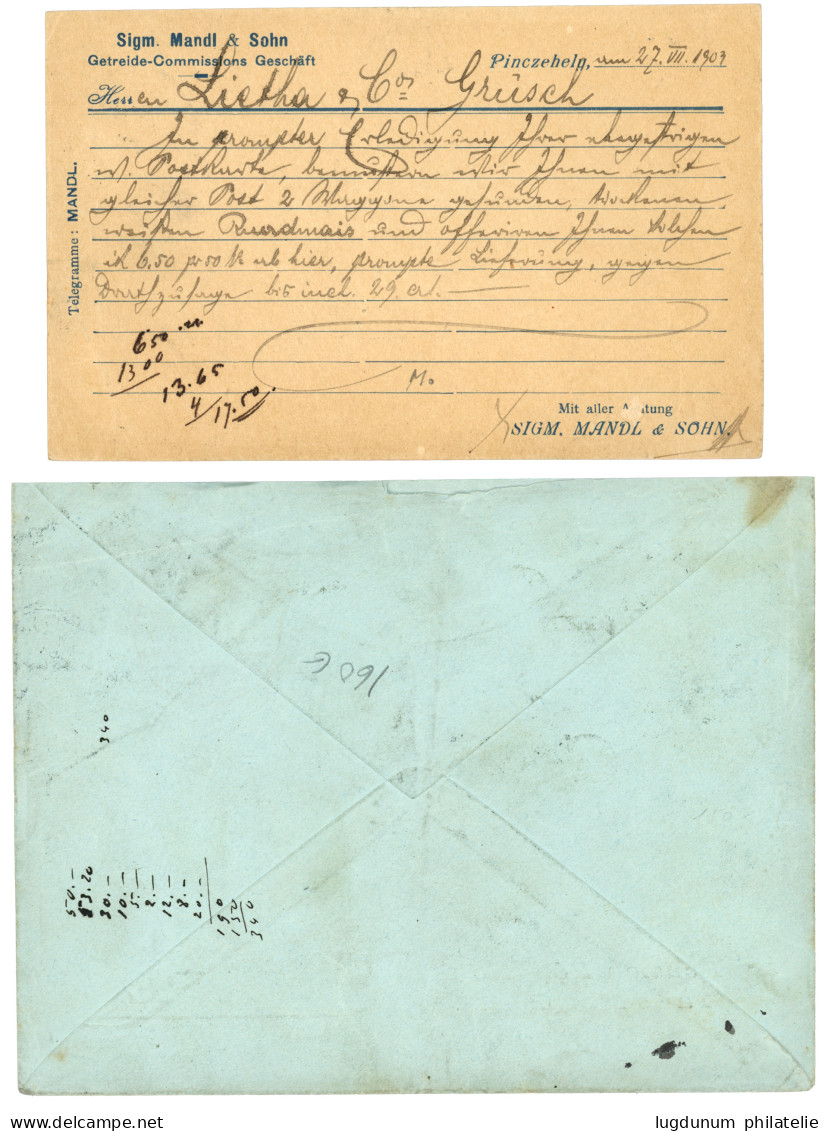 Sigm. Mandl & Sohn
Getreide-Commissions Geschäft
Pinczehely, am 27. VII. 1903
Herren Lietha & Co. Grüsch
In prompter Erledigung Ihrer
w. Postkarte, bemustern wir Ihnen mit
gleicher Post 2 Waggone gesunden, trockenen,
weißen Rundmais und offeriren Ihnen solchen
à 6.50 pr 50 K ab hier, prompte Lieferung, gegen
Drathzusage bis incl. 29. crt. —
Telegramme: MANDL.
6 50
13 00
13.65
4/17.50
M.
Mit aller Achtung
SIGM. MANDL & SOHN.
160 G
340
50.—
53.20
30.—
10.—
5.—
2.—
12.—
8.—
20.—
190
150
340
lugdunum philatelie